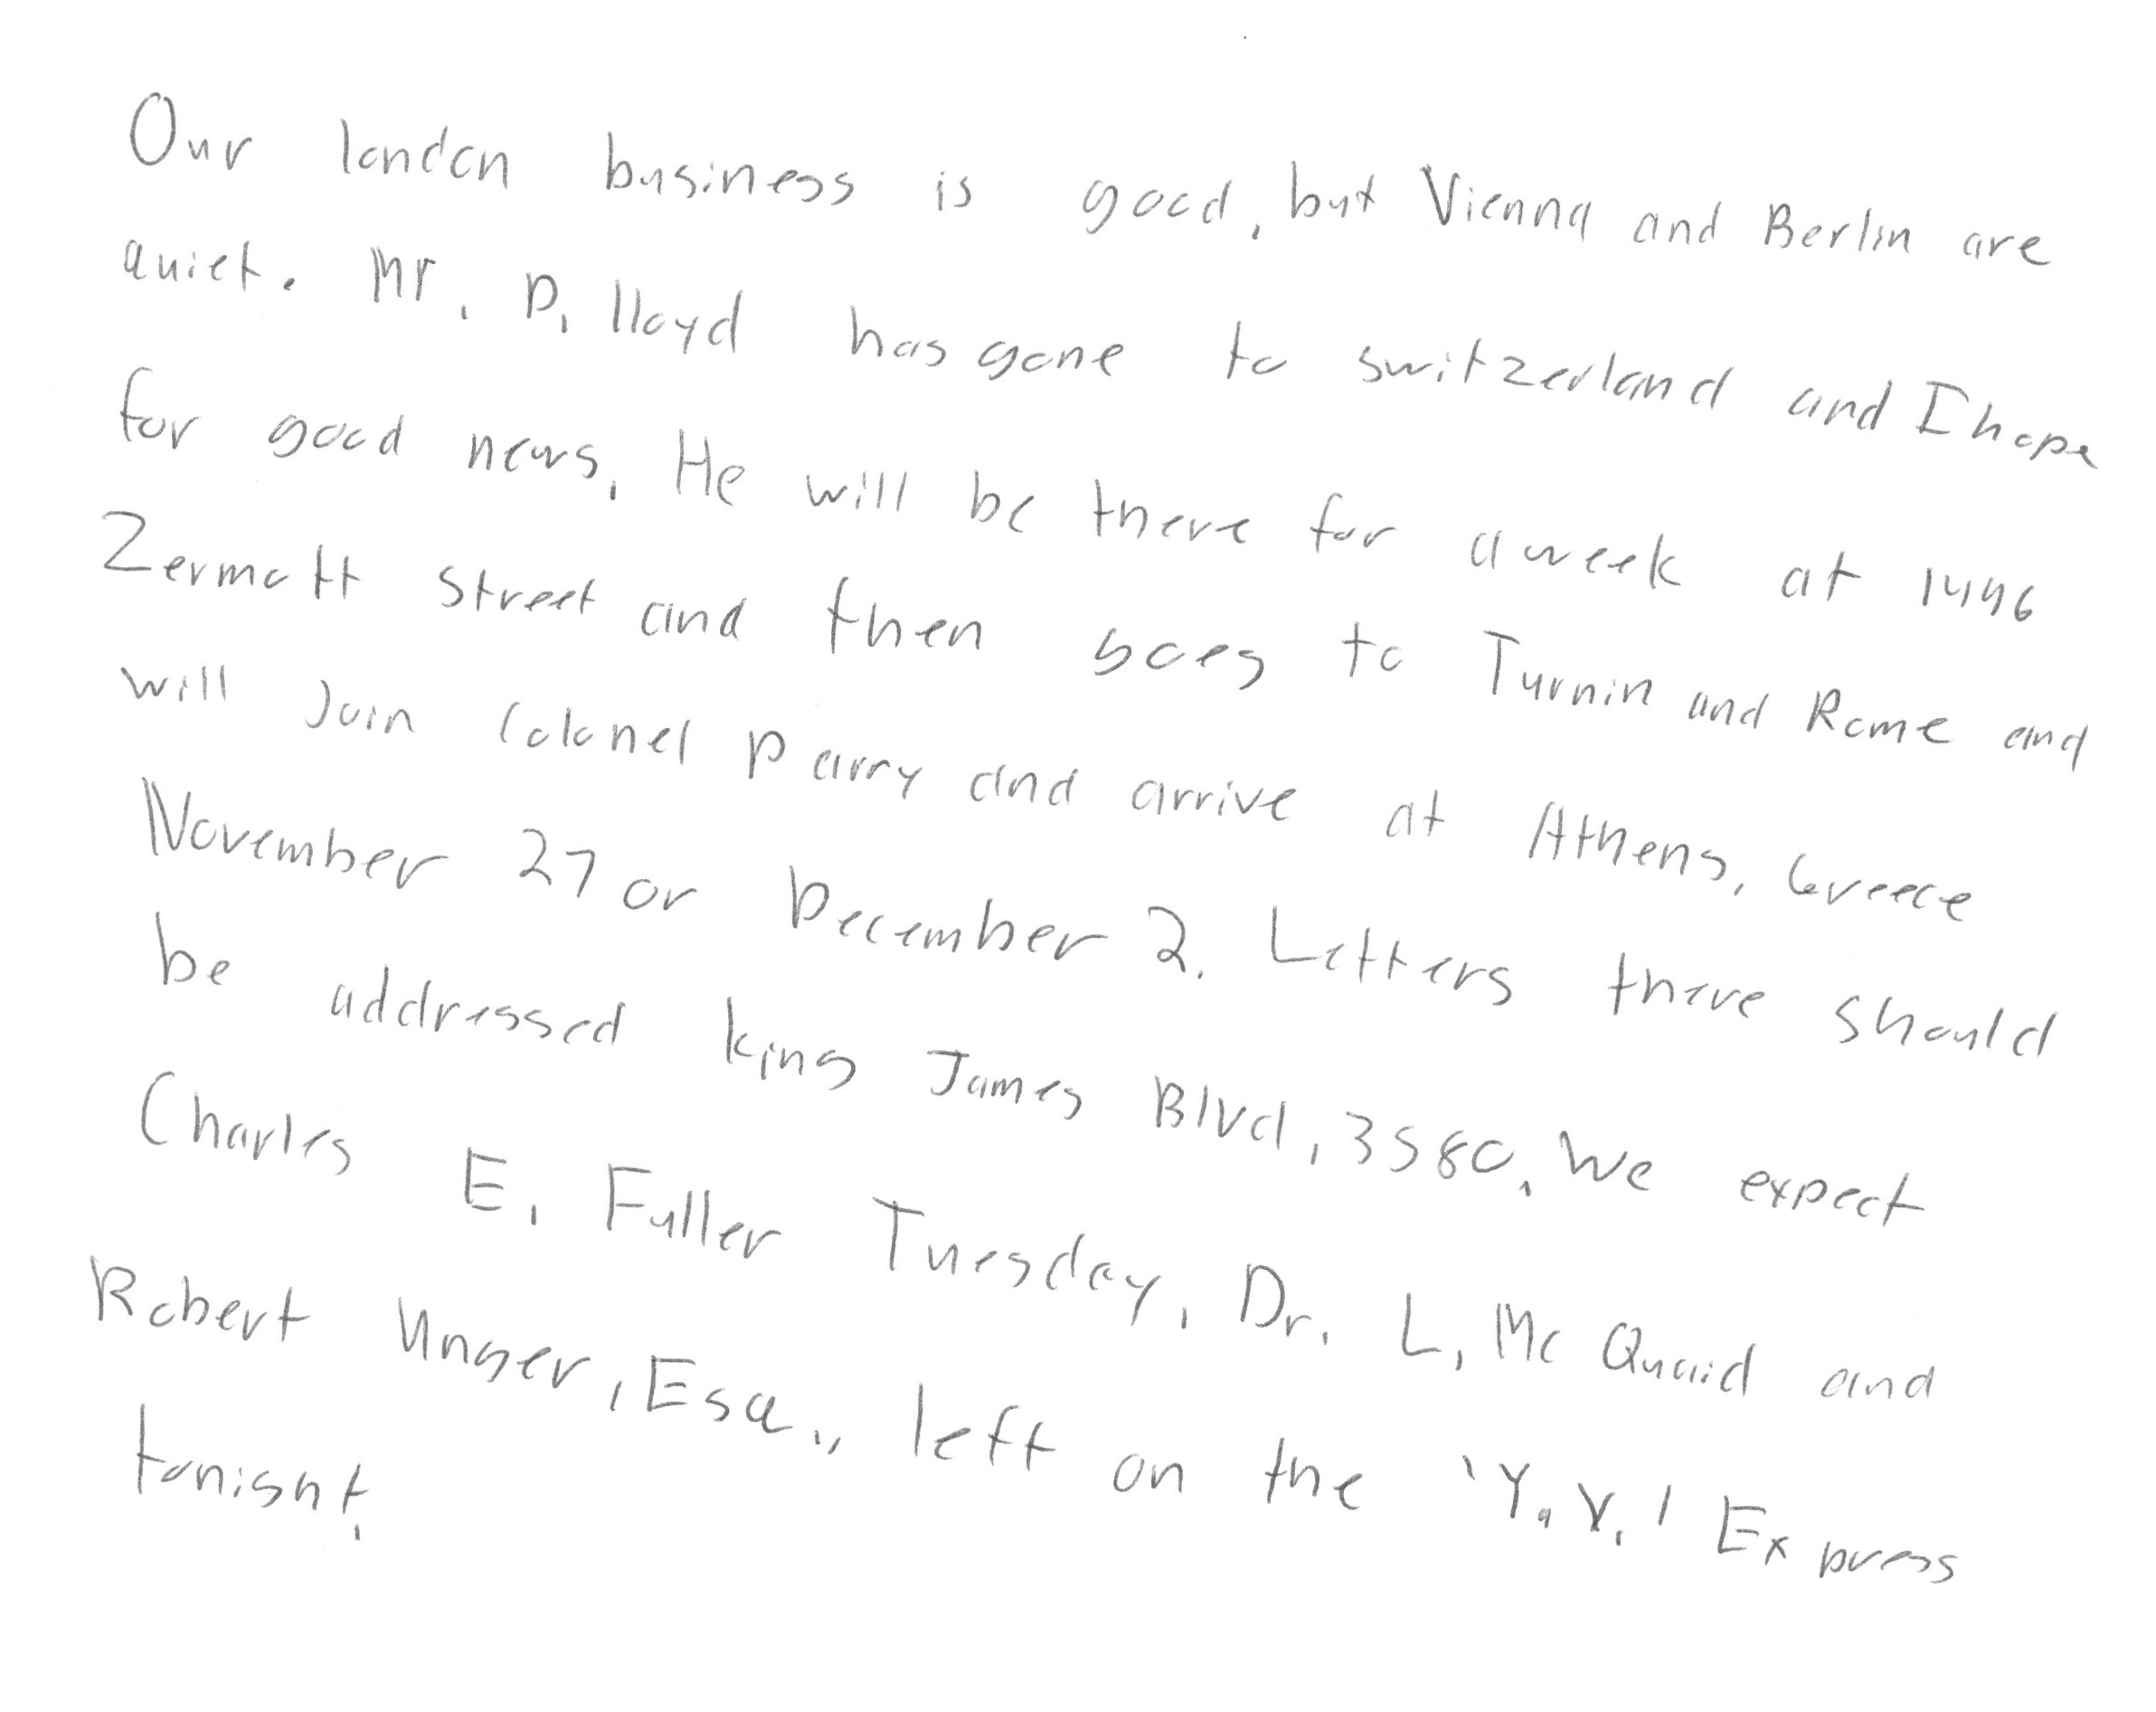 Our london business is good, but Vienna and Berlin are
quiet. Mr. D. lloyd has gone to switzerland and I hope
for good news. He will be there for a week at 1496
Zermatt street and then goes to Turnin and Rome and
will Join Colonel parry and arrive at Athens, Greece
November 27 or December 2. Letters there should
be addressed king James Blvd, 3580. We expect
Charles E. Fuller Tuesday. Dr. L. Mc Quaid and
Robert Unger, Esq., left on the 'Y.X.' Express
tonight.